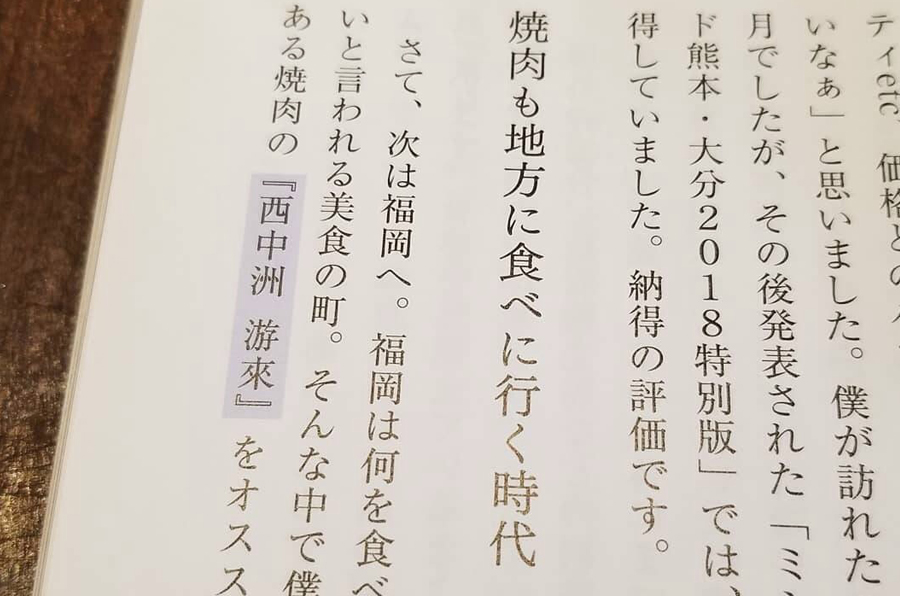 ティetc 価格と
いなぁ」と思いました。僕が訪れた
月でしたが、その後発表された「ミ
ド熊本・大分2018特別版」では、
得していました。納得の評価です。
焼肉も地方に食べに行く時代
さて、次は福岡へ。福岡は何を食べ
いと言われる美食の町。そんな中で僕
ある焼肉の『西中洲 游來』をオスス